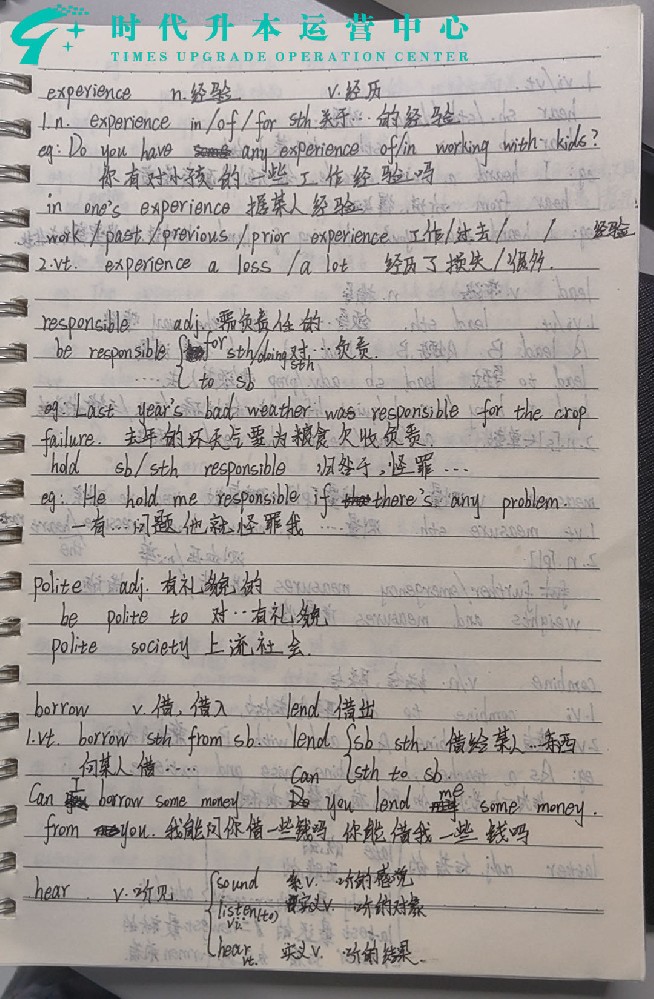 时代升本运营中心
TIMES UPGRADE OPERATION CENTER
experience n.经验 v.经历
1.n. experience in/of/for sth 关于…的经验
eg: Do you have any experience of/in working with kids?
你有对小孩的一些工作经验吗
in one's experience 据某人经验
work/past/previous/prior experience 工作/过去/ / 经验
2.vt. experience a loss/a lot 经历了损失/很多.
responsible adj. 需负责任的
be responsible { for sth/doing sth 对…负责.
to sb
eg: Last year's bad weather was responsible for the crop
failure. 去年的坏天气要为粮食欠收负责
hold sb/sth responsible 归咎于,怪罪…
eg: He hold me responsible if there's any problem
一有…问题他就怪罪我
polite adj. 有礼貌的
be polite to 对…有礼貌
polite society 上流社会.
borrow v.借,借入 lend 借出
1.vt. borrow sth from sb. lend { sb sth. 借给某人…东西
向某人借…… sth to sb
Can I borrow some money Can you lend me some money.
from you. 我能问你借一些钱吗 你能借我一些钱吗
hear v.听见 { sound 系v. 听的感觉
listen(to) vi. 实义v. 听的对象
hear vt. 实义v. 听的结果.